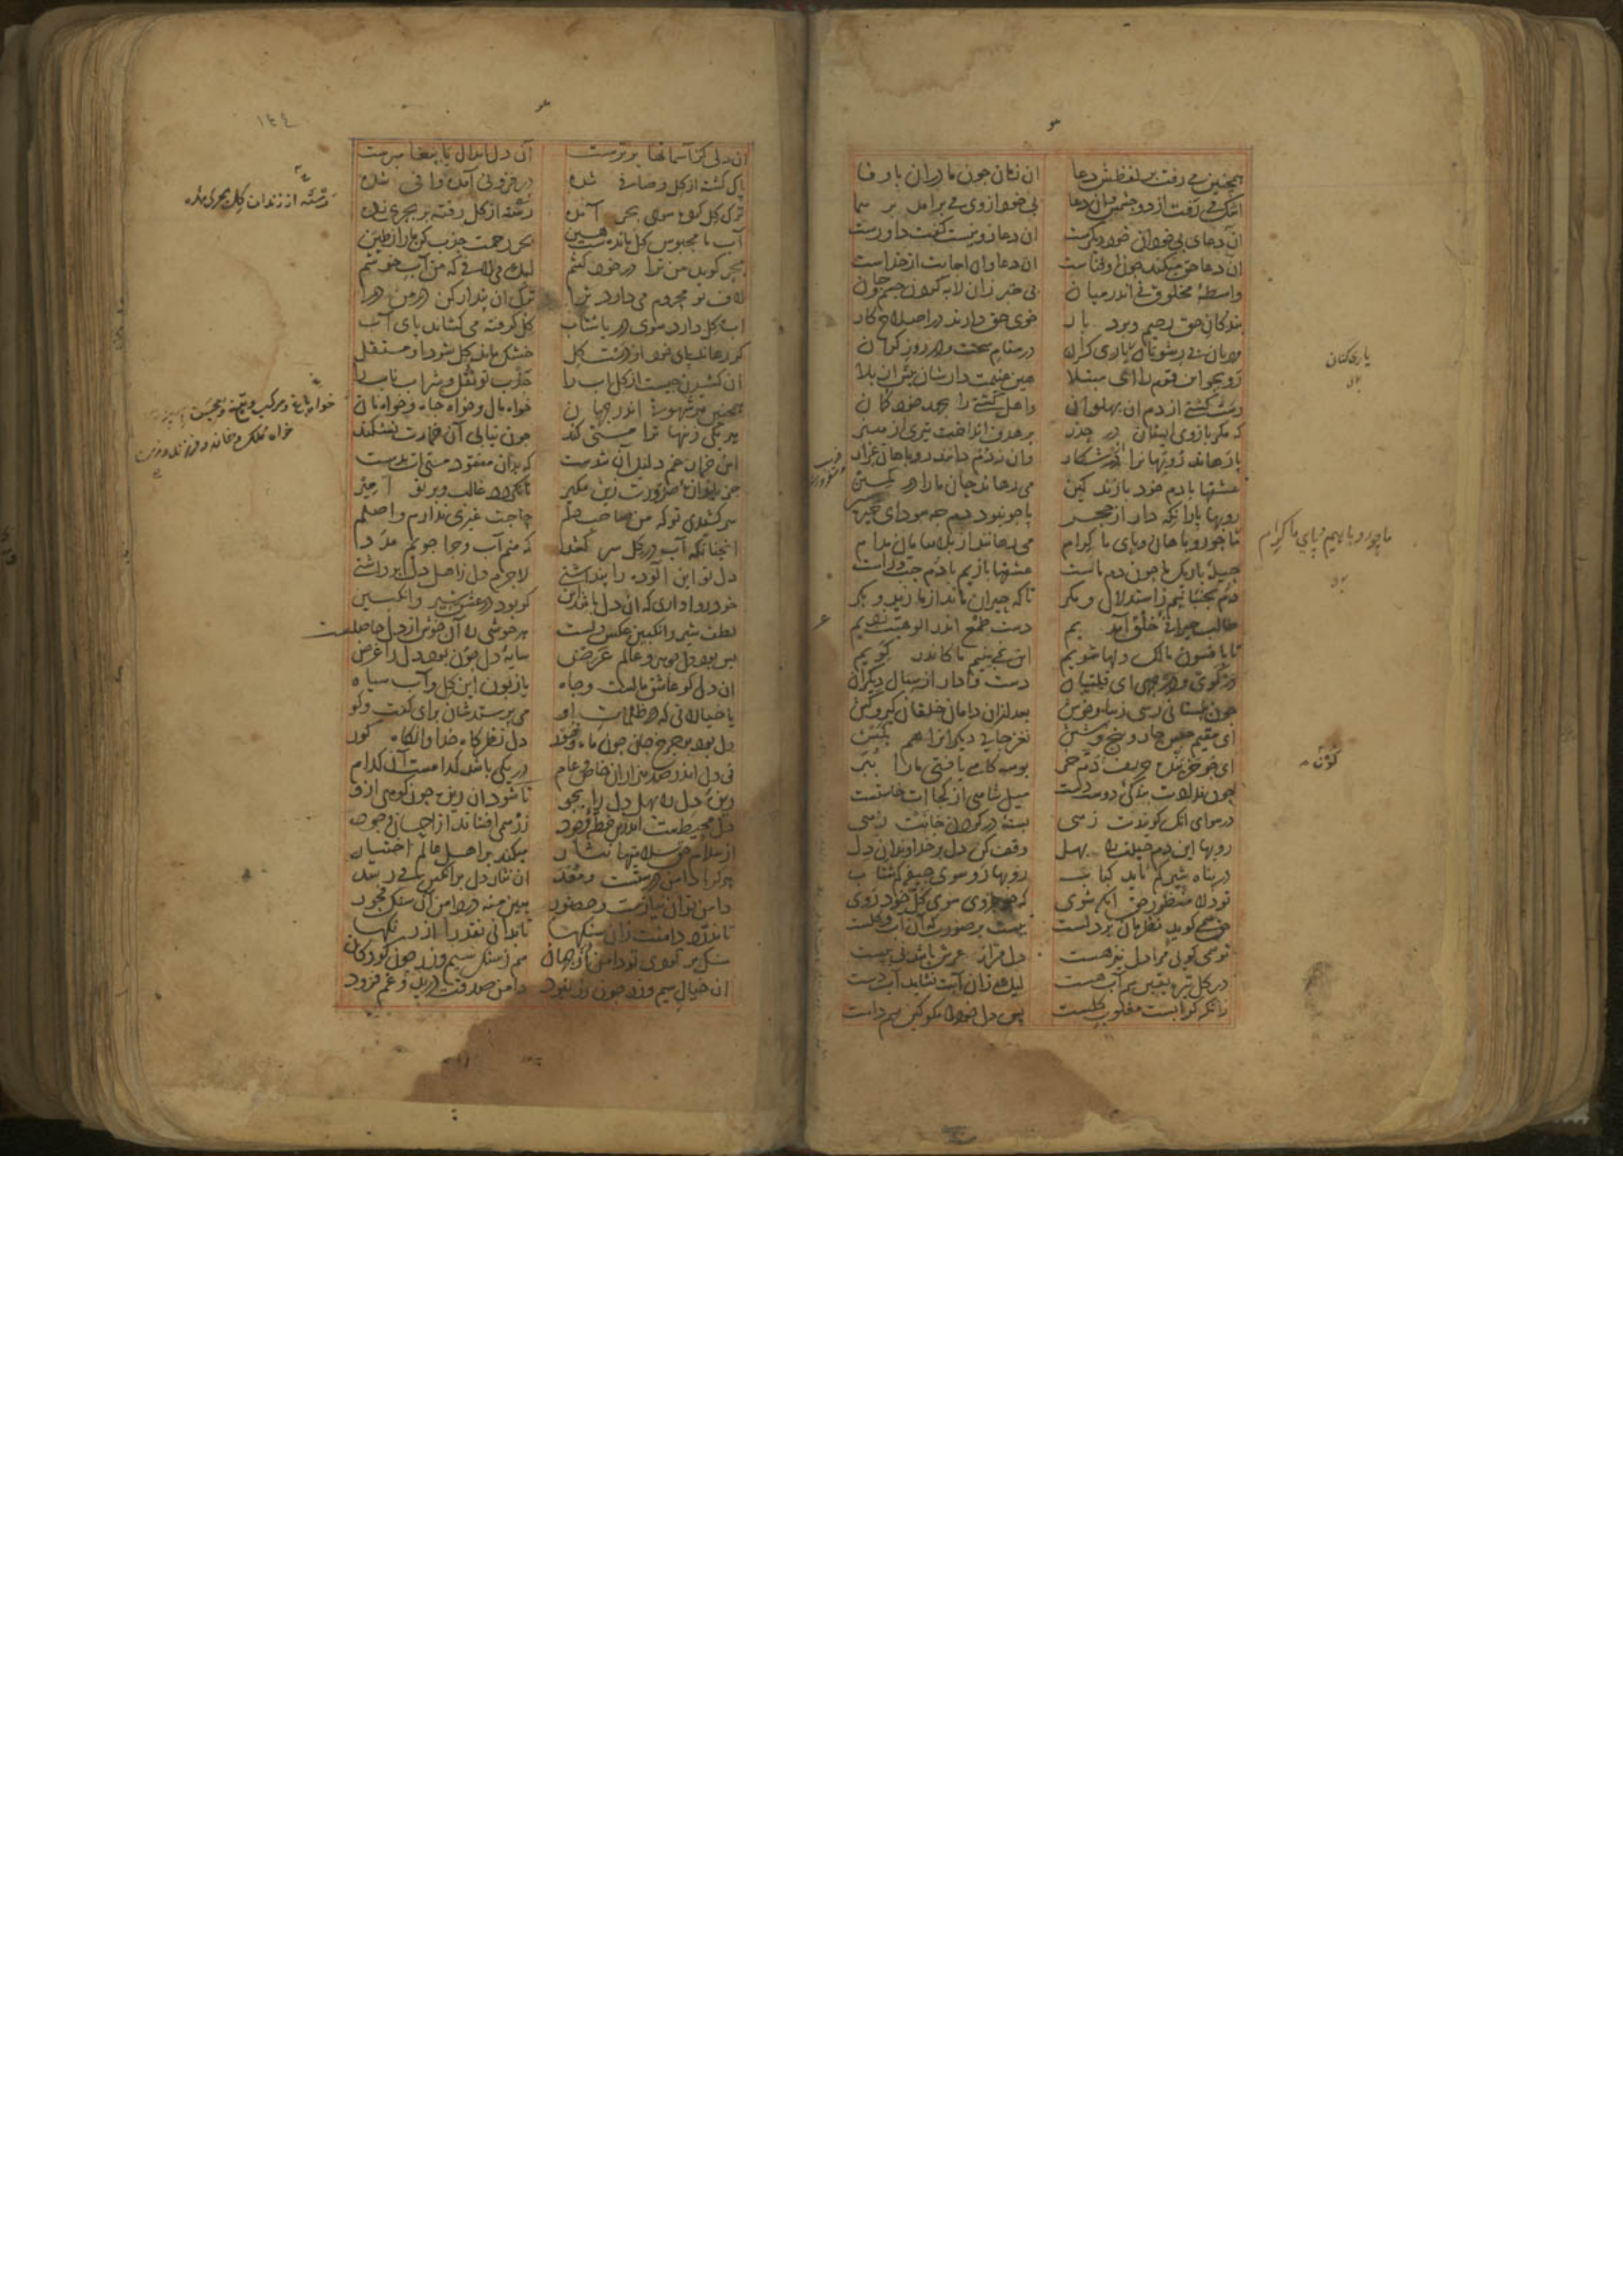 همچنین می رفت بر لفظش دعا آن زمان چون مادران با وفا
اشک می رفت از دو چشمش و آن دعا بی خود از وی می برآمد بر سما
آن دعای بی خودان خود دیگرست آن دعا زو نیست گفت داورست
آن دعا حق میکند چون او فناست آن دعا و آن اجابت از خداست
واسطهٔ مخلوق نی اندر میان بی خبر زان لابه کردن جسم و جان
بندگان حق رحیم و بردبار خوی حق دارند در اصلاح کار
مهربان بی رشوتان یاری گران در مقام سخت و در روز گران
یاری کنان
رو بجو این قوم را ای مبتلا هین غنیمت دارشان پیش از بلا
رست کشتی از دم آن پهلوان و اهل کشتی را بجهد خود گمان
که مگر بازوی ایشان در حذر بر هدف انداخت تیری از هنر
پا رهاند روبهان را در شکار و آن ز دم دانند روباهان غرار
عشقها با دم خود بازند کین می رهاند جان ما را در کمین
روبها پا را نگه دار از حجر پا چو نبود دم چه سود ای خیره سر
ما چو روباهان و پای ما کرام می رهاندمان ز صد گون انتقام
ما چو روباهیم و پای ما کرام
حیلهٔ باریک ما چون دم ماست عشقها بازیم با دم چپ و راست
دم بجنبانیم ز استدلال و مکر تا که حیران ماند از ما زید و بکر
طالب حیرانی خلقان شدیم دست طمع اندر الوهیت زدیم
تا بافسون مالک دلها شویم این نمی بینیم ما کاندر گویم
در گوی و در چهی ای قلتبان دست وادار از سبال دیگران
چون ببستانی رسی زیبا و خوش بعد از آن دامان خلقان گیر و کش
ای مقیم حبس چار و پنج و شش نغز جایی دیگران را هم بکش
ای چو خربنده حریف کون خر بوسه گاهی یافتی ما را ببر
کون
چون ندادت بندگی دوست دست میل شاهی از کجاات خاستست
در هوای آنک گویندت زهی بستهٔ در گردن جانت زهی
روبها این دم حیلت را بهل وقف کن دل بر خداوندان دل
در پناه شیر کم ناید کباب روبها تو سوی جیفه کم شتاب
تو دلا منظور حق آنگه شوی که چو جزوی سوی کل خود روی
حق همی گوید نظرمان بر دلست نیست بر صورت که آن آب و گلست
تو همی گویی مرا دل نیز هست دل فراز عرش باشد نی به پست
در گل تیره یقین هم آب هست لیک زان آبت نشاید آب دست
زانکه گر آبست مغلوب گلست پس دل خود را مگو کین هم دلست
١٤٤
آن دلی کز آسمانها برترست آن دل ابدال یا پیغامبرست
پاک گشته آن ز گل صافی شده در فزونی آمده وافی شده
ترک گل کرده سوی بحر آمده رسته از زندان گل بحری شده
رسته از زندان گل بحری شده
آب ما محبوس گل ماندست هین بحر رحمت جذب کن ما را ز طین
بحر گوید من ترا در خود کشم لیک می لافی که من آب خوشم
لاف تو محروم می دارد ترا ترک آن پندار کن در من درآ
آب گل دارد سوی دریا شتاب گل گرفته می کشاند پای آب
گر رهاند پای خود از دست گل گل بماند خشک و او شد مستقل
آن کشیدن چیست از گل آب را جذب تو نقل و شراب ناب را
همچنین هر شهوتی اندر جهان خواه مال و خواه جاه و خواه نان
خواه باغ و مرکب و تیغ و مجن
خواه ملک و خانه و فرزند و زن
هر یکی زینها ترا مستی کند چون نیابی آن خمارت بشکند
این خمار غم دلیل آن شدست که بدان مفقود مستی ات بدست
جز باندازهٔ ضرورت زین مگیر تا نگردد غالب و بر تو امیر
سر کشیدی تو که من صاحب دلم حاجت غیری ندارم واصلم
آنچنانکه آب در گل سر کشد که منم آب و چرا جویم مدد
دل تو این آلوده را پنداشتی لاجرم دل ز اهل دل برداشتی
خود روا داری که آن دل باشد این کو بود در عشق شیر و انگبین
لطف شیر و انگبین عکس دلست هر خوشی را آن خوش از دل حاصلست
پس بود دل جوهر و عالم عرض سایهٔ دل چون بود دل را غرض
آن دلی کو عاشق مالست و جاه یا زبون این گل و آب سیاه
یا خیالاتی که در ظلمات او می پرستدشان برای گفت و گو
دل نباشد غیر آن دریای نور دل نظرگاه خدا و آنگاه کور
نی دل اندر صد هزاران خاص و عام در یکی باشد کدامست آن کدام
ریزهٔ دل را بهل دل را بجو تا شود آن ریزه چون کوهی ازو
دل محیطست اندرین خطهٔ وجود زر همی افشاند از احسان و جود
از سلام حق سلامتها نثار میکند بر اهل عالم اختیار
هر کرا دامن درستست و معد آن نثار دل بر آنکس می رسد
دامن تو آن نیازست و حضور هین منه در دامن آن سنگ فجور
تا ندرد دامنت زان سنگها تا بدانی نقد را از رنگها
سنگ پر کردی تو دامن از جهان هم ز سنگ سیم و زر چون کودکان
آن خیال سیم و زر چون زر نبود دامن صدقت درید و غم فزود